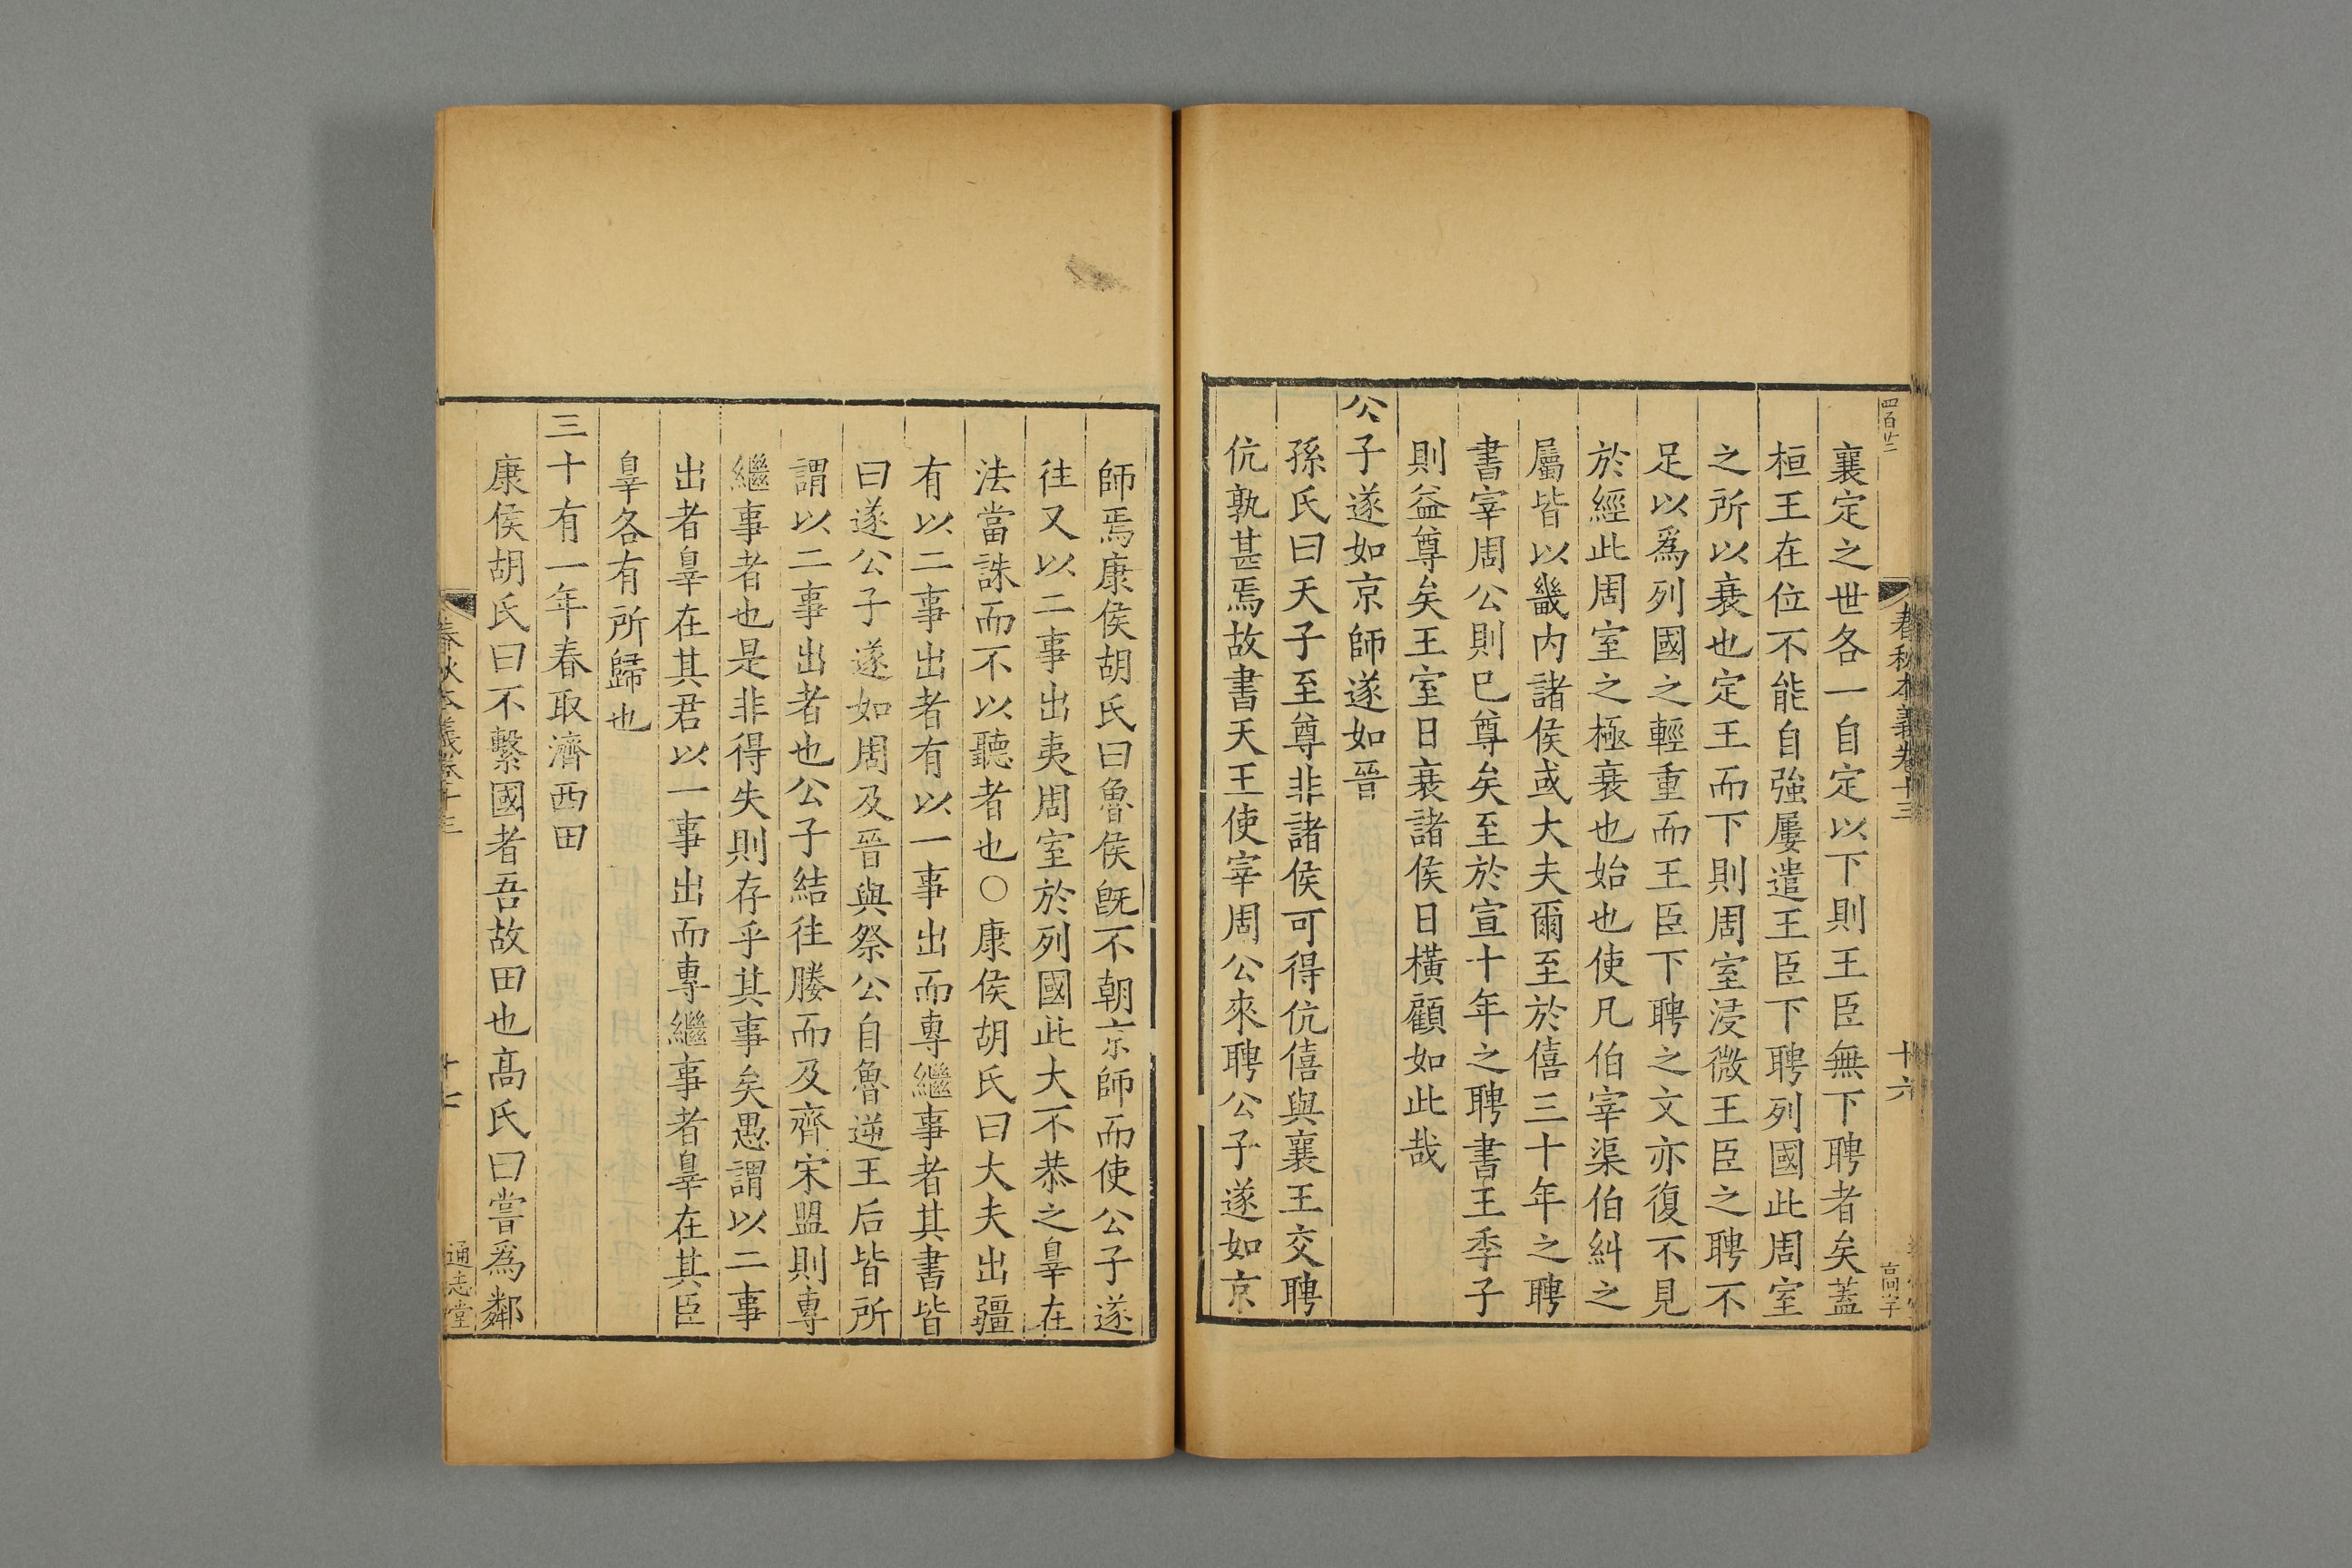 四百廿二
春秋本義卷十三
十六
高宇
襄定之世各一自定以下則王臣無下聘者矣蓋
桓王在位不能自強屢遣王臣下聘列國此周室
之所以衰也定王而下則周室浸微王臣之聘不
足以爲列國之輕重而王臣下聘之文亦復不見
於經此周室之極衰也始也使凡伯宰渠伯糾之
屬皆以畿内諸侯或大夫爾至於僖三十年之聘
書宰周公則巳尊矣至於宣十年之聘書王季子
則益尊矣王室日衰諸侯日橫顧如此哉
公子遂如京師遂如晉
孫氏曰天子至尊非諸侯可得伉僖與襄王交聘
伉孰甚焉故書天王使宰周公來聘公子遂如京
師焉康侯胡氏曰魯侯旣不朝京師而使公子遂
往又以二事出夷周室於列國此大不恭之辠在
法當誅而不以聽者也○康侯胡氏曰大夫出疆
有以二事出者有以一事出而專繼事者其書皆
曰遂公子遂如周及晉與祭公自魯逆王后皆所
謂以二事出者也公子結往媵而及齊宋盟則專
繼事者也是非得失則存乎其事矣愚謂以二事
出者辠在其君以一事出而專繼事者辠在其臣
辠各有所歸也
三十有一年春取濟西田
康侯胡氏曰不繫國者吾故田也高氏曰嘗爲鄰
春秋本義卷十三
十七
通志堂